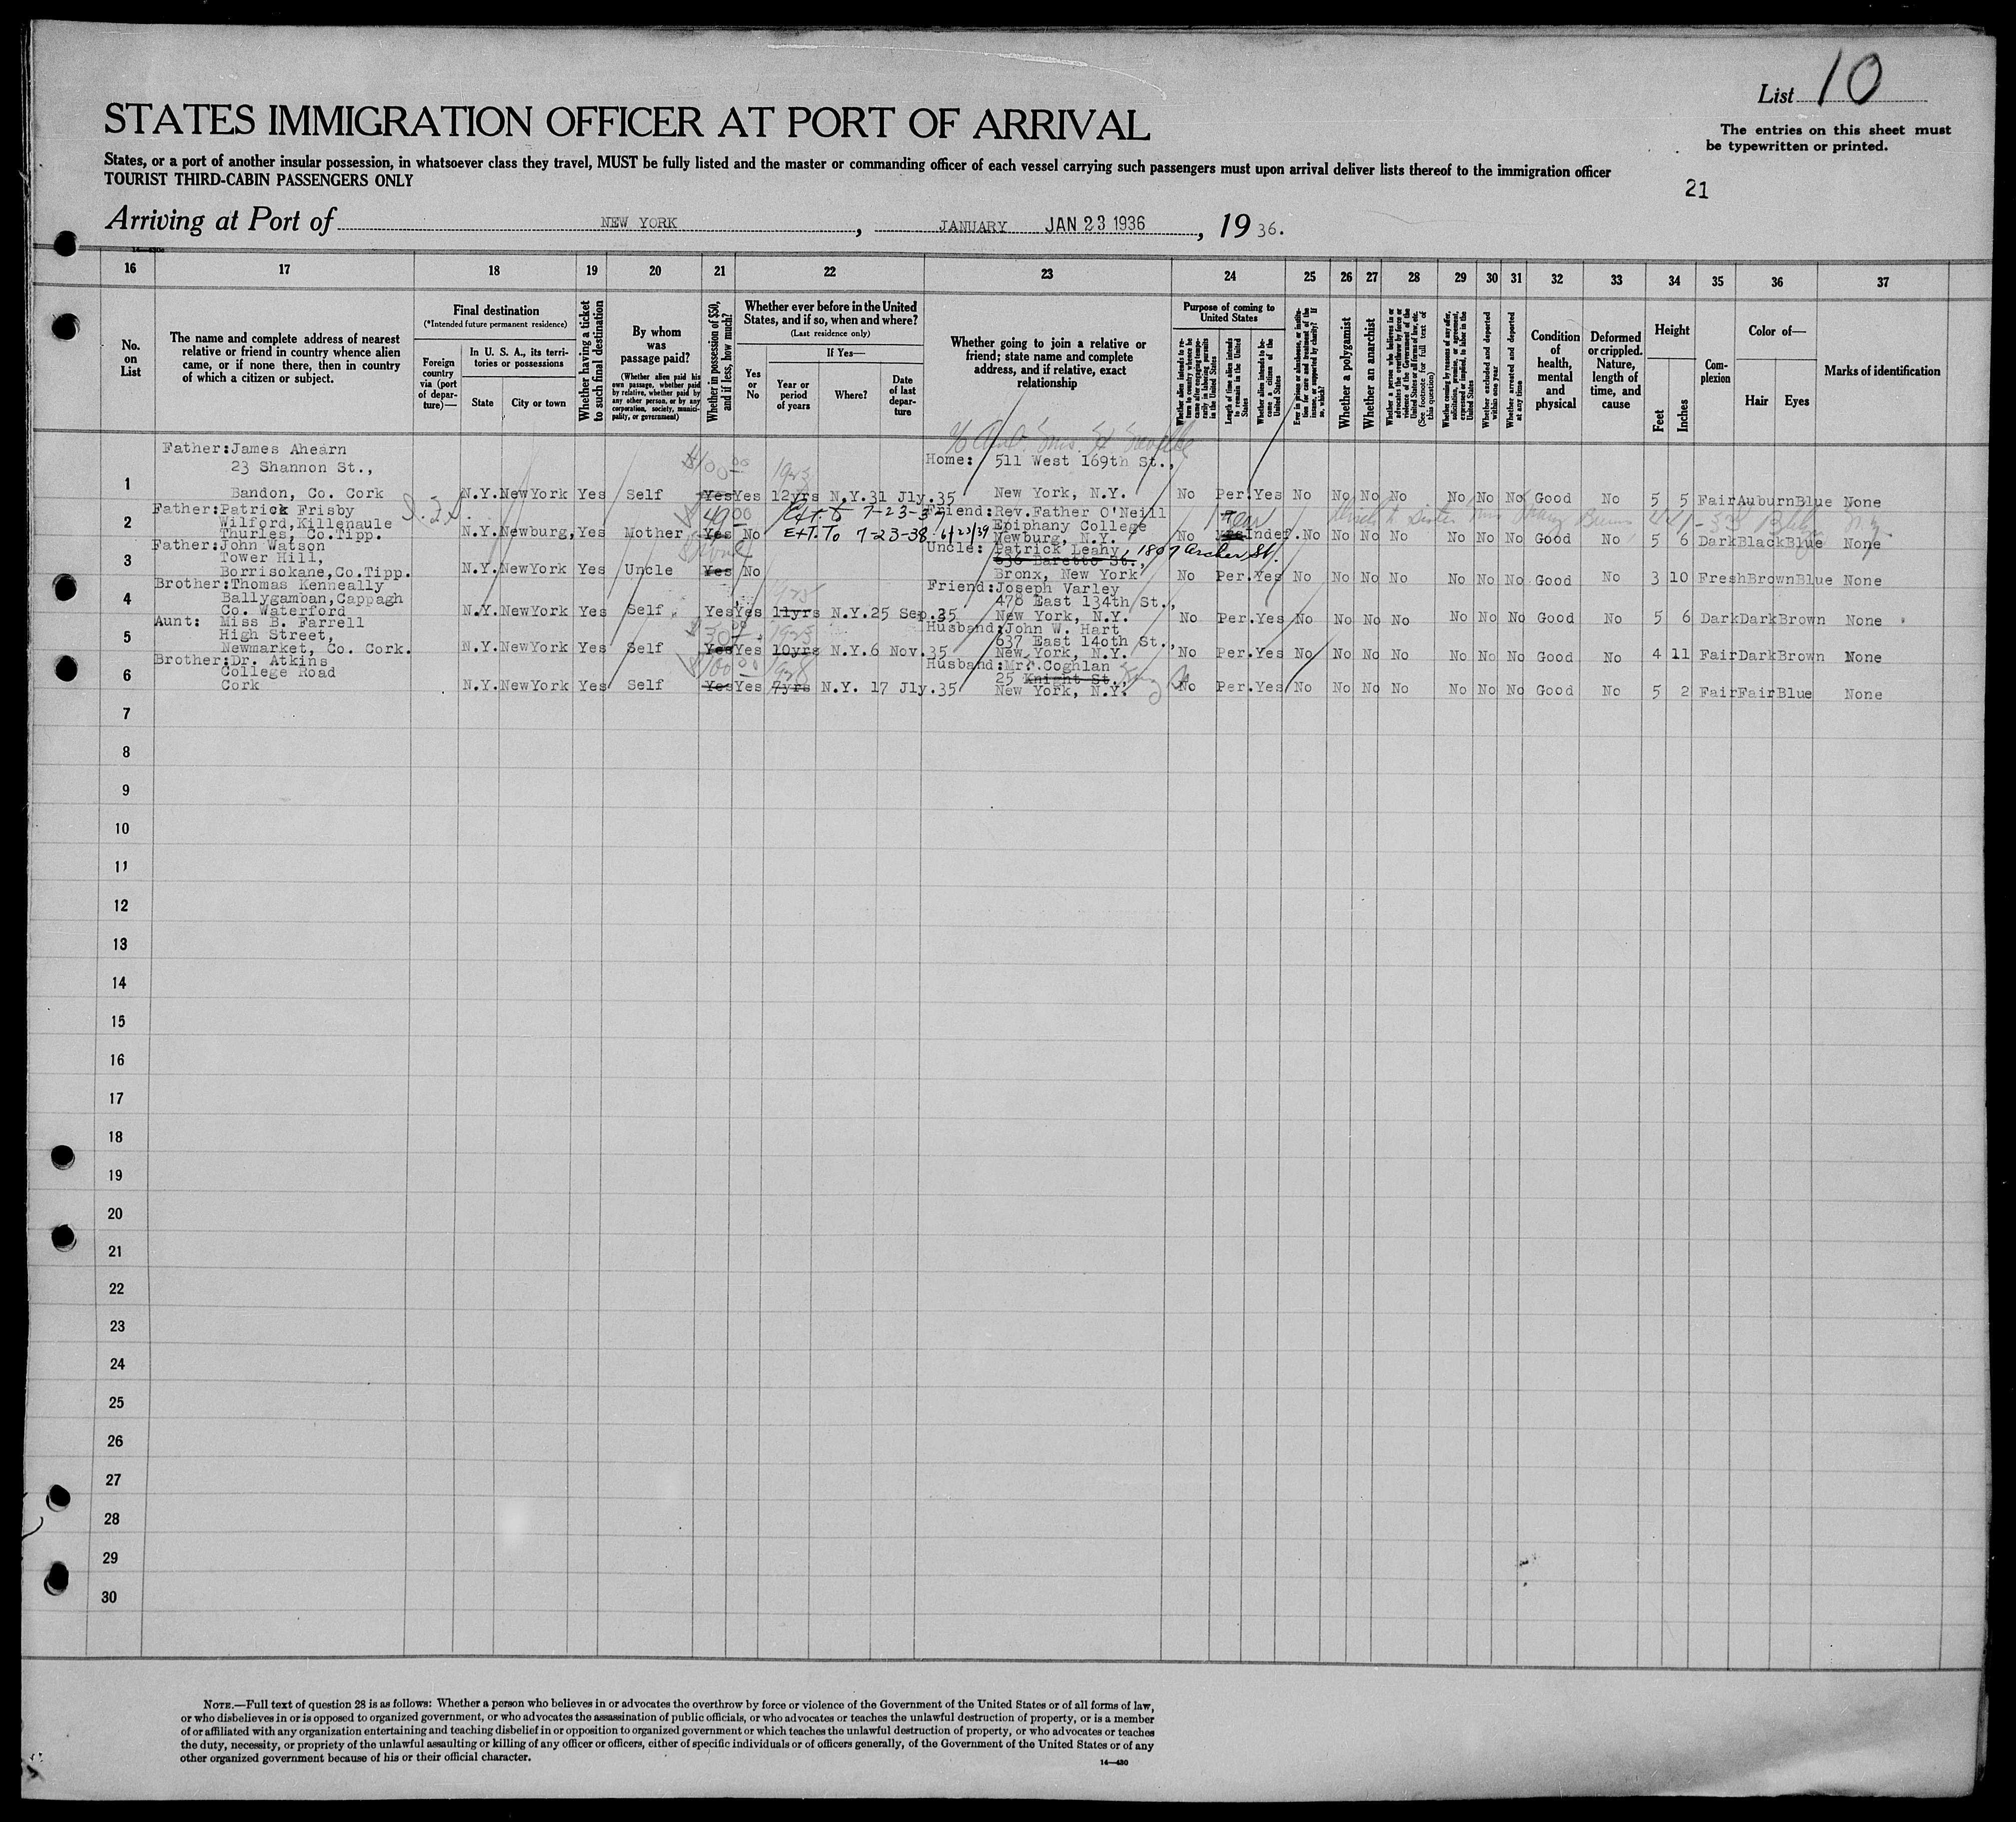 List 10
STATES IMMIGRATION OFFICER AT PORT OF ARRIVAL
The entries on this sheet must
be typewritten or printed.
States, or a port of another insular possession, in whatsoever class they travel, MUST be fully listed and the master or commanding officer of each vessel carrying such passengers must upon arrival deliver lists thereof to the immigration officer
TOURIST THIRD-CABIN PASSENGERS ONLY
21
Arriving at Port of NEW YORK, JANUARY JAN 23 1936, 19 36.
16 17 18 19 20 21 22 23 24 25 26 27 28 29 30 31 32 33 34 35 36 37
No. on List
The name and complete address of nearest
relative or friend in country whence alien
came, or if none there, then in country
of which a citizen or subject.
Final destination
(*Intended future permanent residence)
Foreign country via (port of departure)—
In U. S. A., its territories or possessions
State City or town
Whether having a ticket to such final destination
By whom was passage paid?
(Whether alien paid his own passage, whether paid by relative, whether paid by any other person, or by any corporation, society, municipality, or government)
Whether in possession of $50, and if less, how much?
Whether ever before in the United
States, and if so, when and where?
(Last residence only)
Yes or No
If Yes—
Year or period of years Where? Date of last departure
Whether going to join a relative or
friend; state name and complete
address, and if relative, exact
relationship
Purpose of coming to United States
Length of time alien intends to remain in the United States
Whether alien intends to become a citizen of the United States
Whether a polygamist
Whether an anarchist
Whether excluded and deported within one year
Whether arrested and deported at any time
Condition of health, mental and physical
Deformed or crippled. Nature, length of time, and cause
Height
Feet Inches
Complexion
Color of—
Hair Eyes
Marks of identification
1 Father:James Ahearn
23 Shannon St.,
Bandon, Co. Cork N.Y. NewYork Yes Self $100.00 Yes Yes 1923 12yrs N.Y. 31 Jly.35 Home: 511 West 169th St.,
New York, N.Y. No Per. Yes No No No No No No No Good No 5 5 Fair Auburn Blue None
2 Father:Patrick Frisby
Wilford,Killenaule
Thurles, Co.Tipp. N.Y. Newburg, Yes Mother 49.00 Yes No Ext. to 7-23-37
Ext. To 7-23-38. 6/23/39 Friend:Rev.Father O'Neill
Epiphany College
Newburg, N.Y. No Indef. No No No No No No No Good No 5 6 Dark Black Blue None
3 Father:John Watson
Tower Hill,
Borrisokane,Co.Tipp. N.Y. NewYork Yes Uncle Yes No Uncle: Patrick Leahy, 1807 Archer St.
836 Baretto St.,
Bronx, New York No Per. Yes No No No No No No No Good No 3 10 Fresh Brown Blue None
4 Brother:Thomas Kenneally
Ballygamban,Cappagh
Co. Waterford N.Y. NewYork Yes Self Yes Yes 1925 11yrs N.Y. 25 Sep.35 Friend:Joseph Varley
478 East 134th St.,
New York, N.Y. No Per. Yes No No No No No No No Good No 5 6 Dark Dark Brown None
5 Aunt: Miss B. Farrell
High Street,
Newmarket, Co. Cork. N.Y. NewYork Yes Self $30.00 Yes Yes 1925 10yrs N.Y. 6 Nov.35 Husband:John W. Hart
637 East 140th St.,
New York, N.Y. No Per. Yes No No No No No No No Good No 4 11 Fair Dark Brown None
6 Brother:Dr. Atkins
College Road
Cork N.Y. NewYork Yes Self $100.00 Yes Yes 1928 7yrs N.Y. 17 Jly.35 Husband:Mr. Coghlan
25 Knight St.,
New York, N.Y. No Per. Yes No No No No No No No Good No 5 2 Fair Fair Blue None
7
8
9
10
11
12
13
14
15
16
17
18
19
20
21
22
23
24
25
26
27
28
29
30
NOTE.—Full text of question 28 is as follows: Whether a person who believes in or advocates the overthrow by force or violence of the Government of the United States or of all forms of law,
or who disbelieves in or is opposed to organized government, or who advocates the assassination of public officials, or who advocates or teaches the unlawful destruction of property, or is a member
of or affiliated with any organization entertaining and teaching disbelief in or opposition to organized government or which teaches the unlawful destruction of property, or who advocates or teaches
the duty, necessity, or propriety of the unlawful assaulting or killing of any officer or officers, either of specific individuals or of officers generally, of the Government of the United States or of any
other organized government because of his or their official character.
14—430